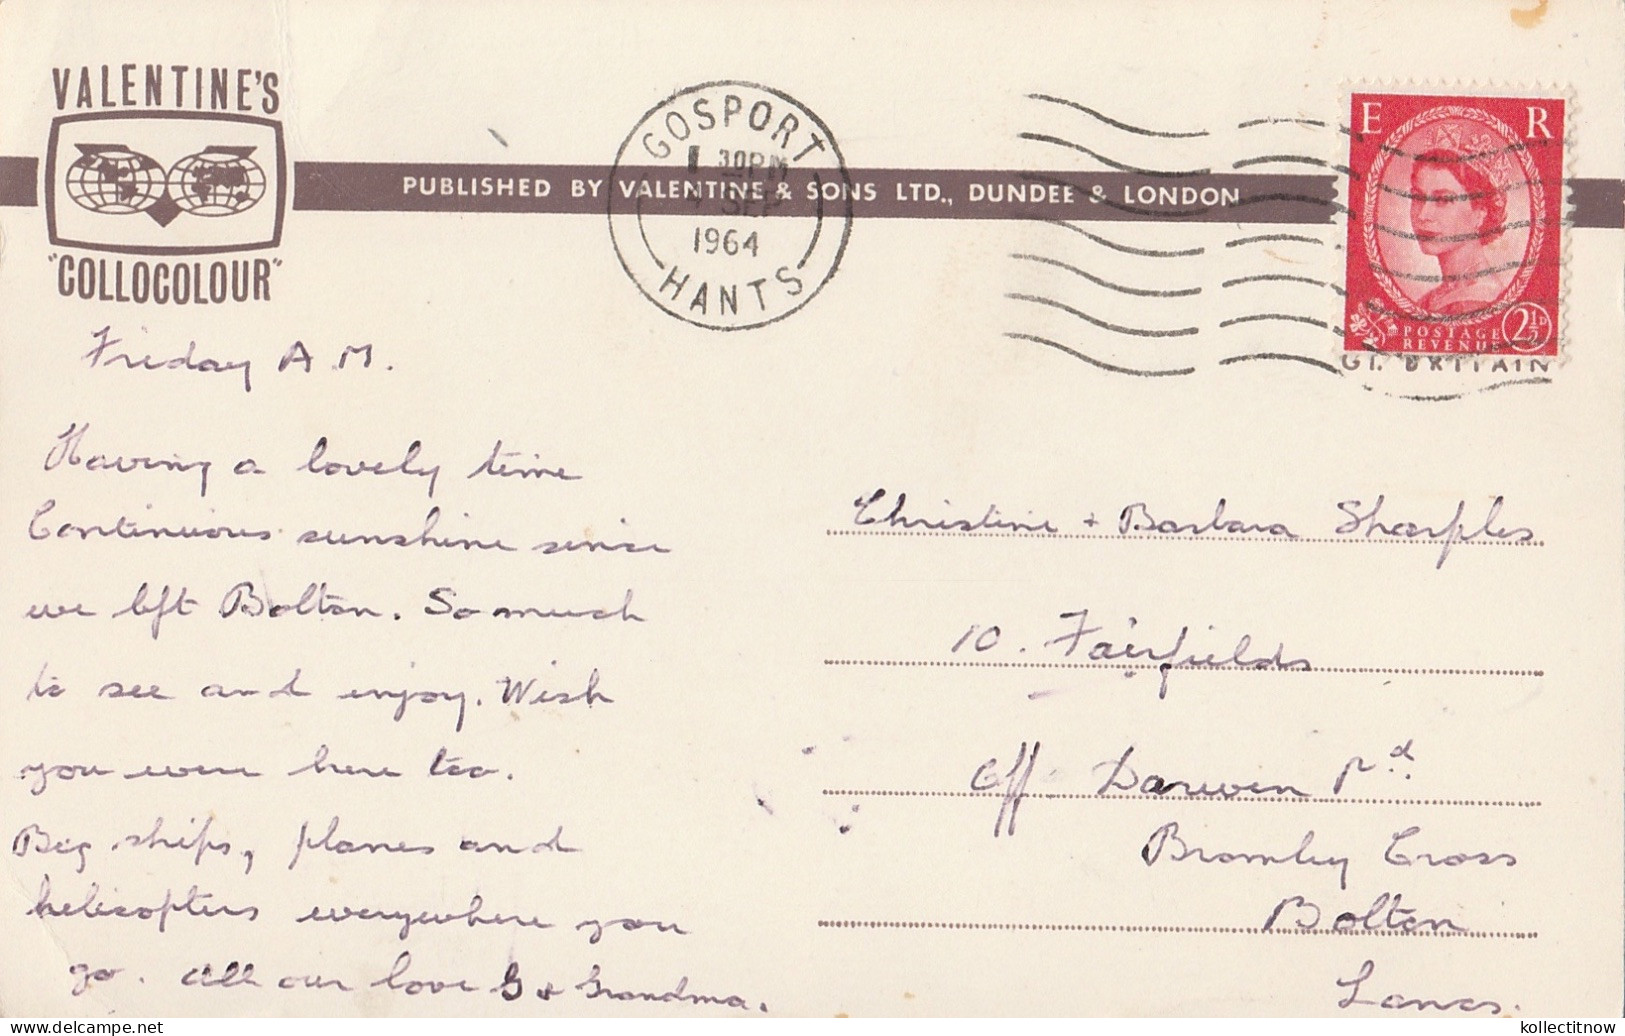 VALENTINE'S
"COLLOCOLOUR"
PUBLISHED BY VALENTINE & SONS LTD., DUNDEE & LONDON
GOSPORT
30PM
SEP
1964
HANTS
E R
POSTAGE
REVENUE
2½D
GT. BRITAIN
Friday A.M.
Having a lovely time
Continuous sunshine since
we left Bolton. So much
to see and enjoy. Wish
you were here too.
Big ships, planes and
helicopters everywhere you
go. All our love G & Grandma.
Christine + Barbara Sharples
10. Fairfields
Off Darwen Rd.
Bromley Cross
Bolton
Lancs.
kollectitnow